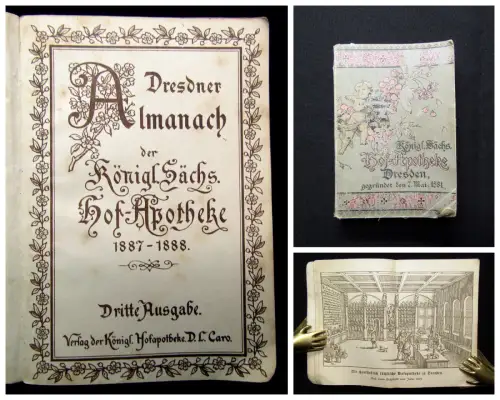 Dresdner
Almanach
der
Königl. Sächs.
Hof-Apotheke
1887-1888.
Dritte Ausgabe.
Verlag der Königl. Hofapotheke. D. L. Caro.
Königl. Sächs.
Hof-Apotheke
Dresden,
gegründet den 7. Mai. 1581.
zu Dresden.